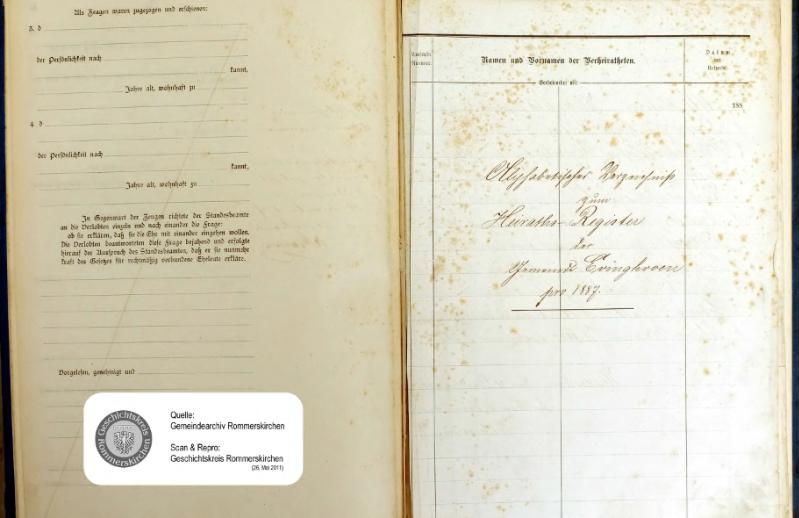 Als Zeugen waren zugezogen und erschienen:
3. d
der Persönlichkeit nach
kannt,
Jahre alt, wohnhaft zu
4. d
der Persönlichkeit nach
kannt,
Jahre alt, wohnhaft zu
In Gegenwart der Zeugen richtete der Standesbeamte
an die Verlobten einzeln und nach einander die Frage:
ob sie erklären, daß sie die Ehe mit einander eingehen wollen.
Die Verlobten beantworteten diese Frage bejahend und erfolgte
hierauf der Ausspruch des Standesbeamten, daß er sie nunmehr
kraft des Gesetzes für rechtmäßig verbundene Eheleute erkläre.
Vorgelesen, genehmigt und
Geschichtskreis
Rommerskirchen
Quelle:
Gemeindearchiv Rommerskirchen
Scan & Repro:
Geschichtskreis Rommerskirchen
(26. Mai 2011)
Laufende
Nummer.
Namen und Vornamen der Verheiratheten.
Datum
der
188
Alphabetisches Verzeichniß
zum
Heiraths-Register
der
Gemeinde Evinghoven
pro 1887.